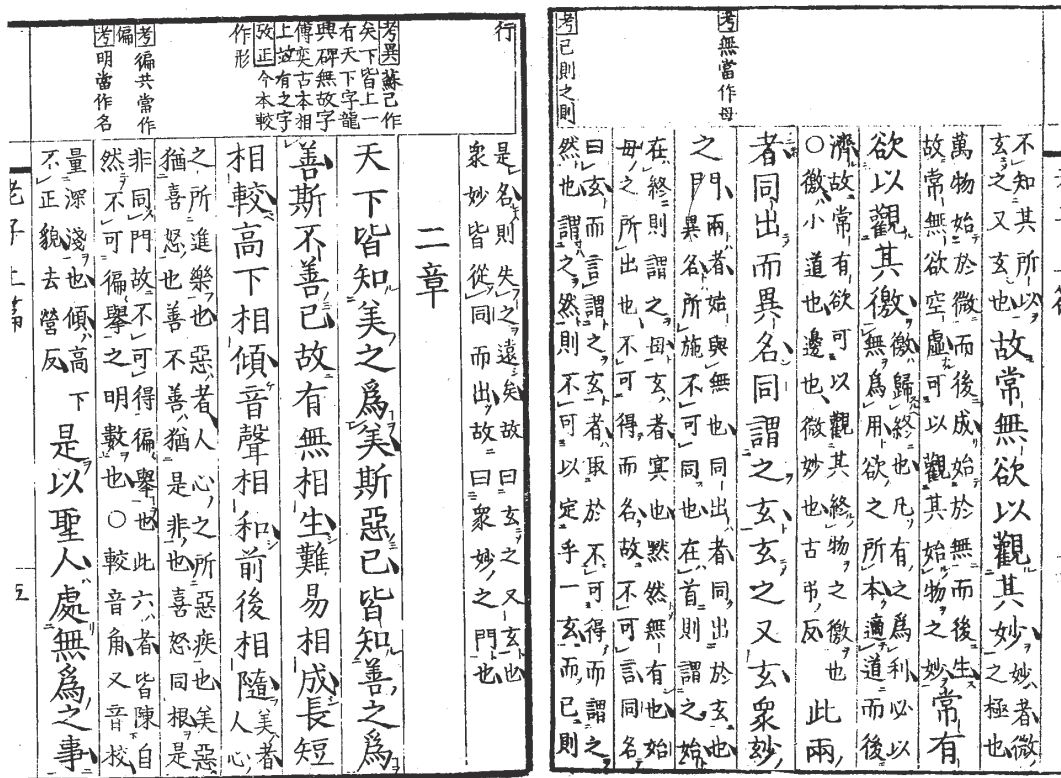 考無當作母
考已則之則
不知其所以
玄之又玄也
故常無欲以觀其妙
妙者微
之極也
萬物始於微而後成始於無而後生
故常無欲空虛可以觀其始物之妙
常有
欲以觀其徼
徼歸終也凡有之爲利必以
無爲用欲之所本適道而後
濟故常有欲可以觀其終物之徼也
○徼小道也邊也微妙也古弔反
此兩
者同出而異名同謂之玄玄之又玄衆妙
之門
兩者始與無也同出者同出於玄也
異名所施不可同也在首則謂之始
在終則謂之母玄者冥也黙然無有也始
母之所出也不可得而名故不可言同名
曰玄而言謂之玄者取於不可得而謂之
然也謂之然則不可以定乎一玄而已則
行
考異蘇已作
矣下皆上一
有天下字龍
興碑無故字
傅奕古本相
上並有之字
攷正今本較
作形
考徧共當作
偏
考明當作名
是名則失之遠矣故曰玄之又玄也
衆妙皆從同而出故曰衆妙之門也
二章
天下皆知美之爲美斯惡已皆知善之爲
善斯不善已故有無相生難易相成長短
相較高下相傾音聲相和前後相隨
美者
人心
之所進樂也惡者人心之所惡疾也美惡
猶喜怒也善不善猶是非也喜怒同根是
非同門故不可得徧舉也此六者皆陳自
然不可徧舉之明數也○較音角又音校
量深淺也傾高下
不正貌去營反
是以聖人處無爲之事
老子上篇
五